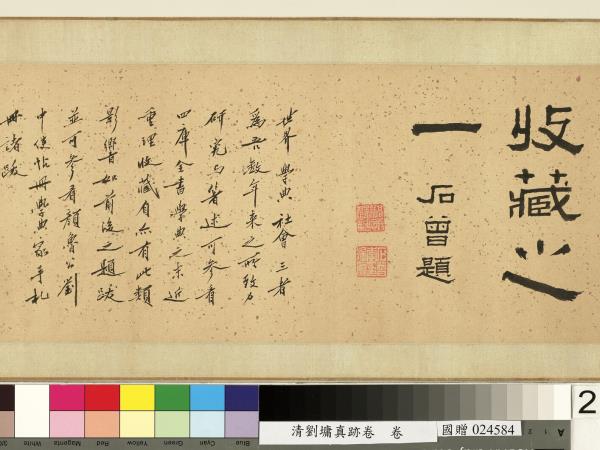 收藏之
一 石曾題
世界學典社會三者
為吾數年來之所致力
研究与著述可參看
四庫全書學典之末近
重理收藏自亦有此類
影響如前後之題跋
並可參看顏魯公劉
中使帖冊學典家手札
冊諸跋
清劉墉真跡卷 卷
國贈 024584
2
White Magenta Red Yellow Green Cyan Blue
A 1 2